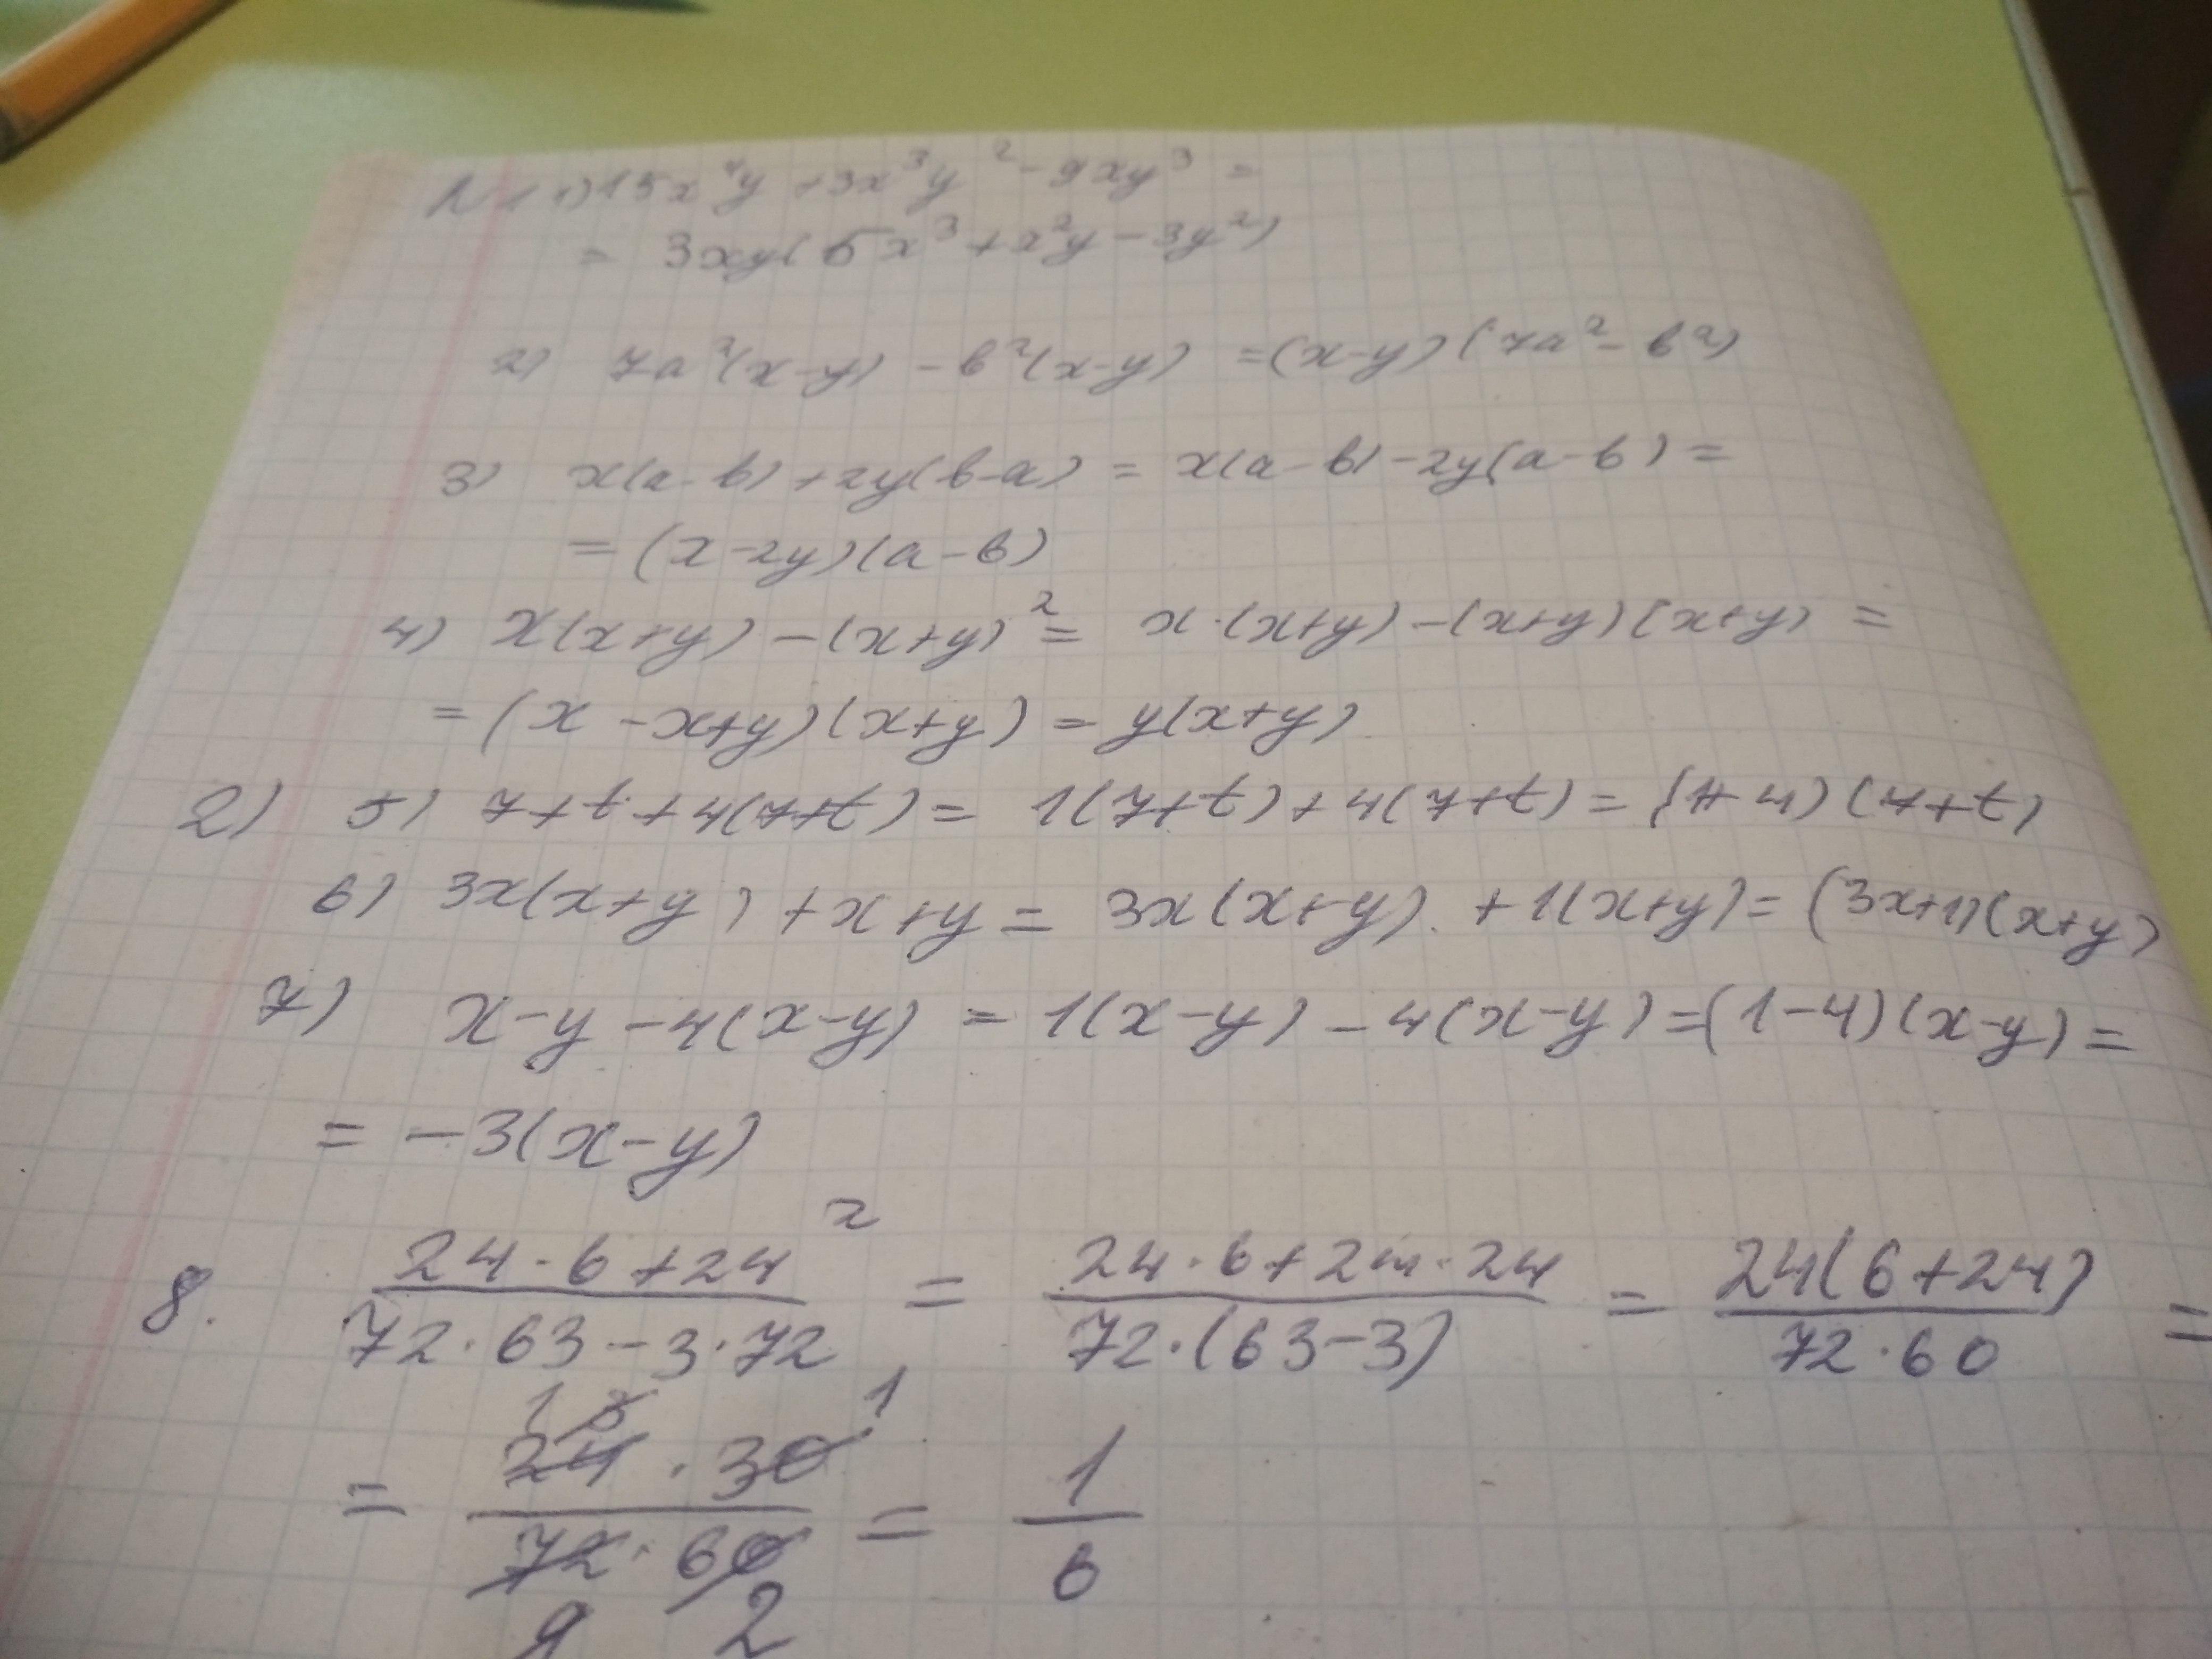 N 1 1) 15x⁴y + 3x³y² - 9xy³ =
= 3xy(5x³ + x²y - 3y²)
2) 7a²(x-y) - b²(x-y) = (x-y)(7a² - b²)
3) x(a-b) + 2y(b-a) = x(a-b) - 2y(a-b) =
= (x-2y)(a-b)
4) x(x+y) - (x+y)² = x·(x+y) - (x+y)(x+y) =
= (x - x+y)(x+y) = y(x+y)
2) 5) 7+t + 4(7+t) = 1(7+t) + 4(7+t) = (1+4)(7+t)
6) 3x(x+y) + x+y = 3x(x+y) + 1(x+y) = (3x+1)(x+y)
7) x-y - 4(x-y) = 1(x-y) - 4(x-y) = (1-4)(x-y) =
= -3(x-y)
8. (24·6+24²)/(72·63-3·72) = (24·6+24·24)/(72·(63-3)) = 24(6+24)/(72·60) =
1 3 1
= (24·30)/(72·60) = 1/6
9 2